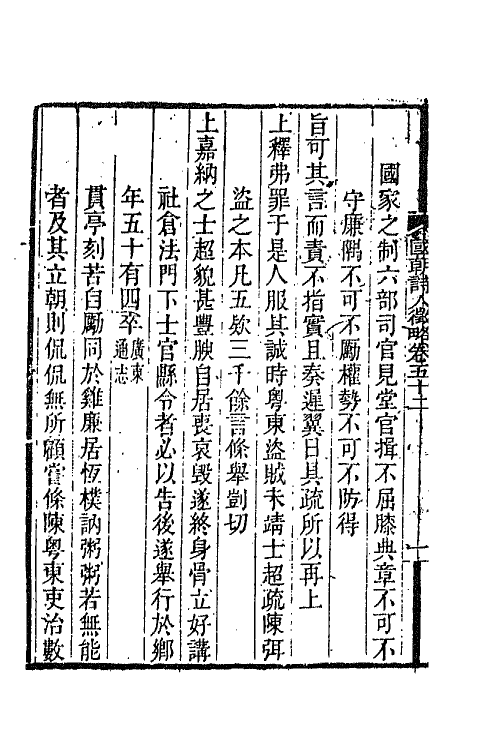 國朝詩人徵略卷五十二
國家之制六部司官見堂官揖不屈膝典章不可不
守廉隅不可不勵權勢不可不防得
旨可其言而責不指實且奏遲翼日具疏所以再上
上釋弗罪于是人服其誠時粵東盜賊未靖士超疏陳弭
盜之本凡五欵三千餘言條舉剴切
上嘉納之士超貌甚豐腴自居喪哀毀遂終身骨立好講
社倉法門下士官縣令者必以告後遂舉行於鄉
年五十有四卒廣東通志
貫亭刻苦自勵同於雞廉居恆樸訥粥粥若無能
者及其立朝則侃侃無所顧嘗條陳粵東吏治數